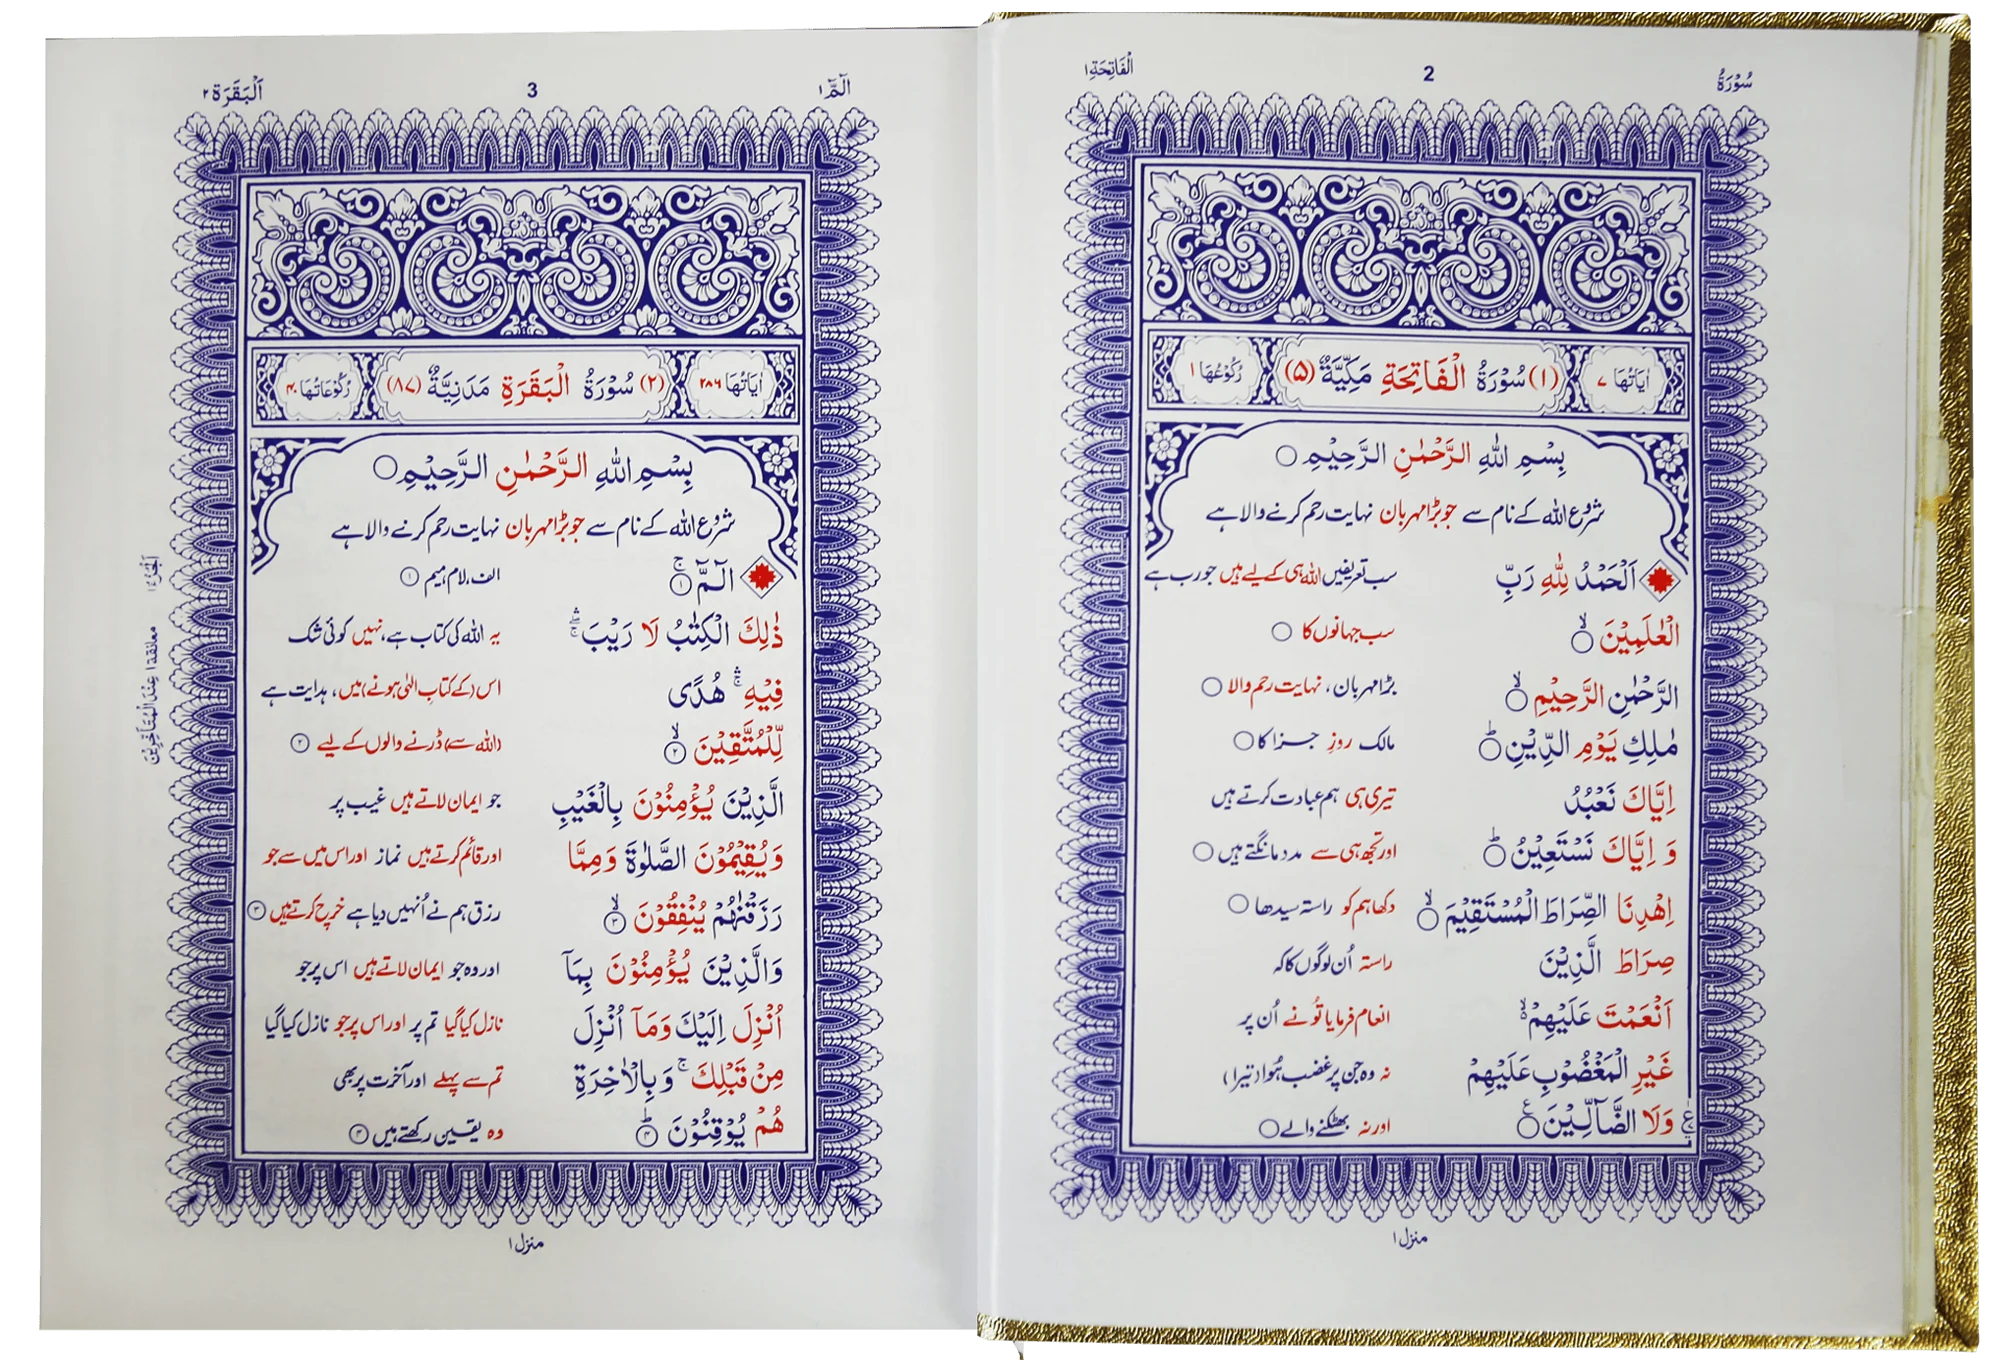 سُوْرَةُ
2
اَلْفَاتِحَة ۱
اٰيَاتُهَا ۷
(۱) سُوْرَةُ الْفَاتِحَةِ مَكِّيَّةٌ (۵)
رُكُوْعُهَا ۱
بِسْمِ اللّٰهِ الرَّحْمٰنِ الرَّحِيْمِ ○
شروع اللہ کے نام سے جو بڑا مہربان نہایت رحم کرنے والا ہے
اَلْحَمْدُ لِلّٰهِ رَبِّ سب تعریفیں اللہ ہی کے لیے ہیں جو رب ہے
الْعٰلَمِيْنَ ۙ○ سب جہانوں کا ○
الرَّحْمٰنِ الرَّحِيْمِ ۙ○ بڑا مہربان، نہایت رحم والا ○
مٰلِكِ يَوْمِ الدِّيْنِ ؕ○ مالک روزِ جزا کا ○
اِيَّاكَ نَعْبُدُ تیری ہی ہم عبادت کرتے ہیں
وَ اِيَّاكَ نَسْتَعِيْنُ ؕ○ اور تجھ ہی سے مدد مانگتے ہیں ○
اِهْدِنَا الصِّرَاطَ الْمُسْتَقِيْمَ ۙ○ دکھا ہم کو راستہ سیدھا ○
صِرَاطَ الَّذِيْنَ راستہ اُن لوگوں کا کہ
اَنْعَمْتَ عَلَيْهِمْ ۙ۬ انعام فرمایا تُو نے اُن پر
غَيْرِ الْمَغْضُوْبِ عَلَيْهِمْ نہ وہ جن پر غضب ہُوا (تیرا)
وَلَا الضَّآلِّيْنَ ○ع اور نہ بھٹکنے والے ○
منزل ۱
الٓمّٓ ۱
3
اَلْبَقَرَة ۲
اٰيَاتُهَا ۲۸۶
(۲) سُوْرَةُ الْبَقَرَةِ مَدَنِيَّةٌ (۸۷)
رُكُوْعَاتُهَا ۴۰
بِسْمِ اللّٰهِ الرَّحْمٰنِ الرَّحِيْمِ ○
شروع اللہ کے نام سے جو بڑا مہربان نہایت رحم کرنے والا ہے
الٓمّٓ ۚ ۱ الف، لام، میم ۱
ذٰلِكَ الْكِتٰبُ لَا رَيْبَ ۛۚ یہ اللہ کی کتاب ہے، نہیں کوئی شک
فِيْهِ ۛۚ هُدًى اس (کے کتابِ الٰہی ہونے) میں، ہدایت ہے
لِّلْمُتَّقِيْنَ ۙ ۲ (اللہ سے) ڈرنے والوں کے لیے ۲
الَّذِيْنَ يُؤْمِنُوْنَ بِالْغَيْبِ جو ایمان لاتے ہیں غیب پر
وَيُقِيْمُوْنَ الصَّلٰوةَ وَمِمَّا اور قائم کرتے ہیں نماز اور اس میں سے جو
رَزَقْنٰهُمْ يُنْفِقُوْنَ ۙ ۳ رزق ہم نے اُنہیں دیا ہے خرچ کرتے ہیں ۳
وَالَّذِيْنَ يُؤْمِنُوْنَ بِمَآ اور وہ جو ایمان لاتے ہیں اس پر جو
اُنْزِلَ اِلَيْكَ وَمَآ اُنْزِلَ نازل کیا گیا تم پر اور اس پر جو نازل کیا گیا
مِنْ قَبْلِكَ ۚ وَبِالْاٰخِرَةِ تم سے پہلے اور آخرت پر بھی
هُمْ يُوْقِنُوْنَ ؕ ۴ وہ یقین رکھتے ہیں ۴
منزل ۱
الجزء ۱
معانقة ۱ عند المتاخرين